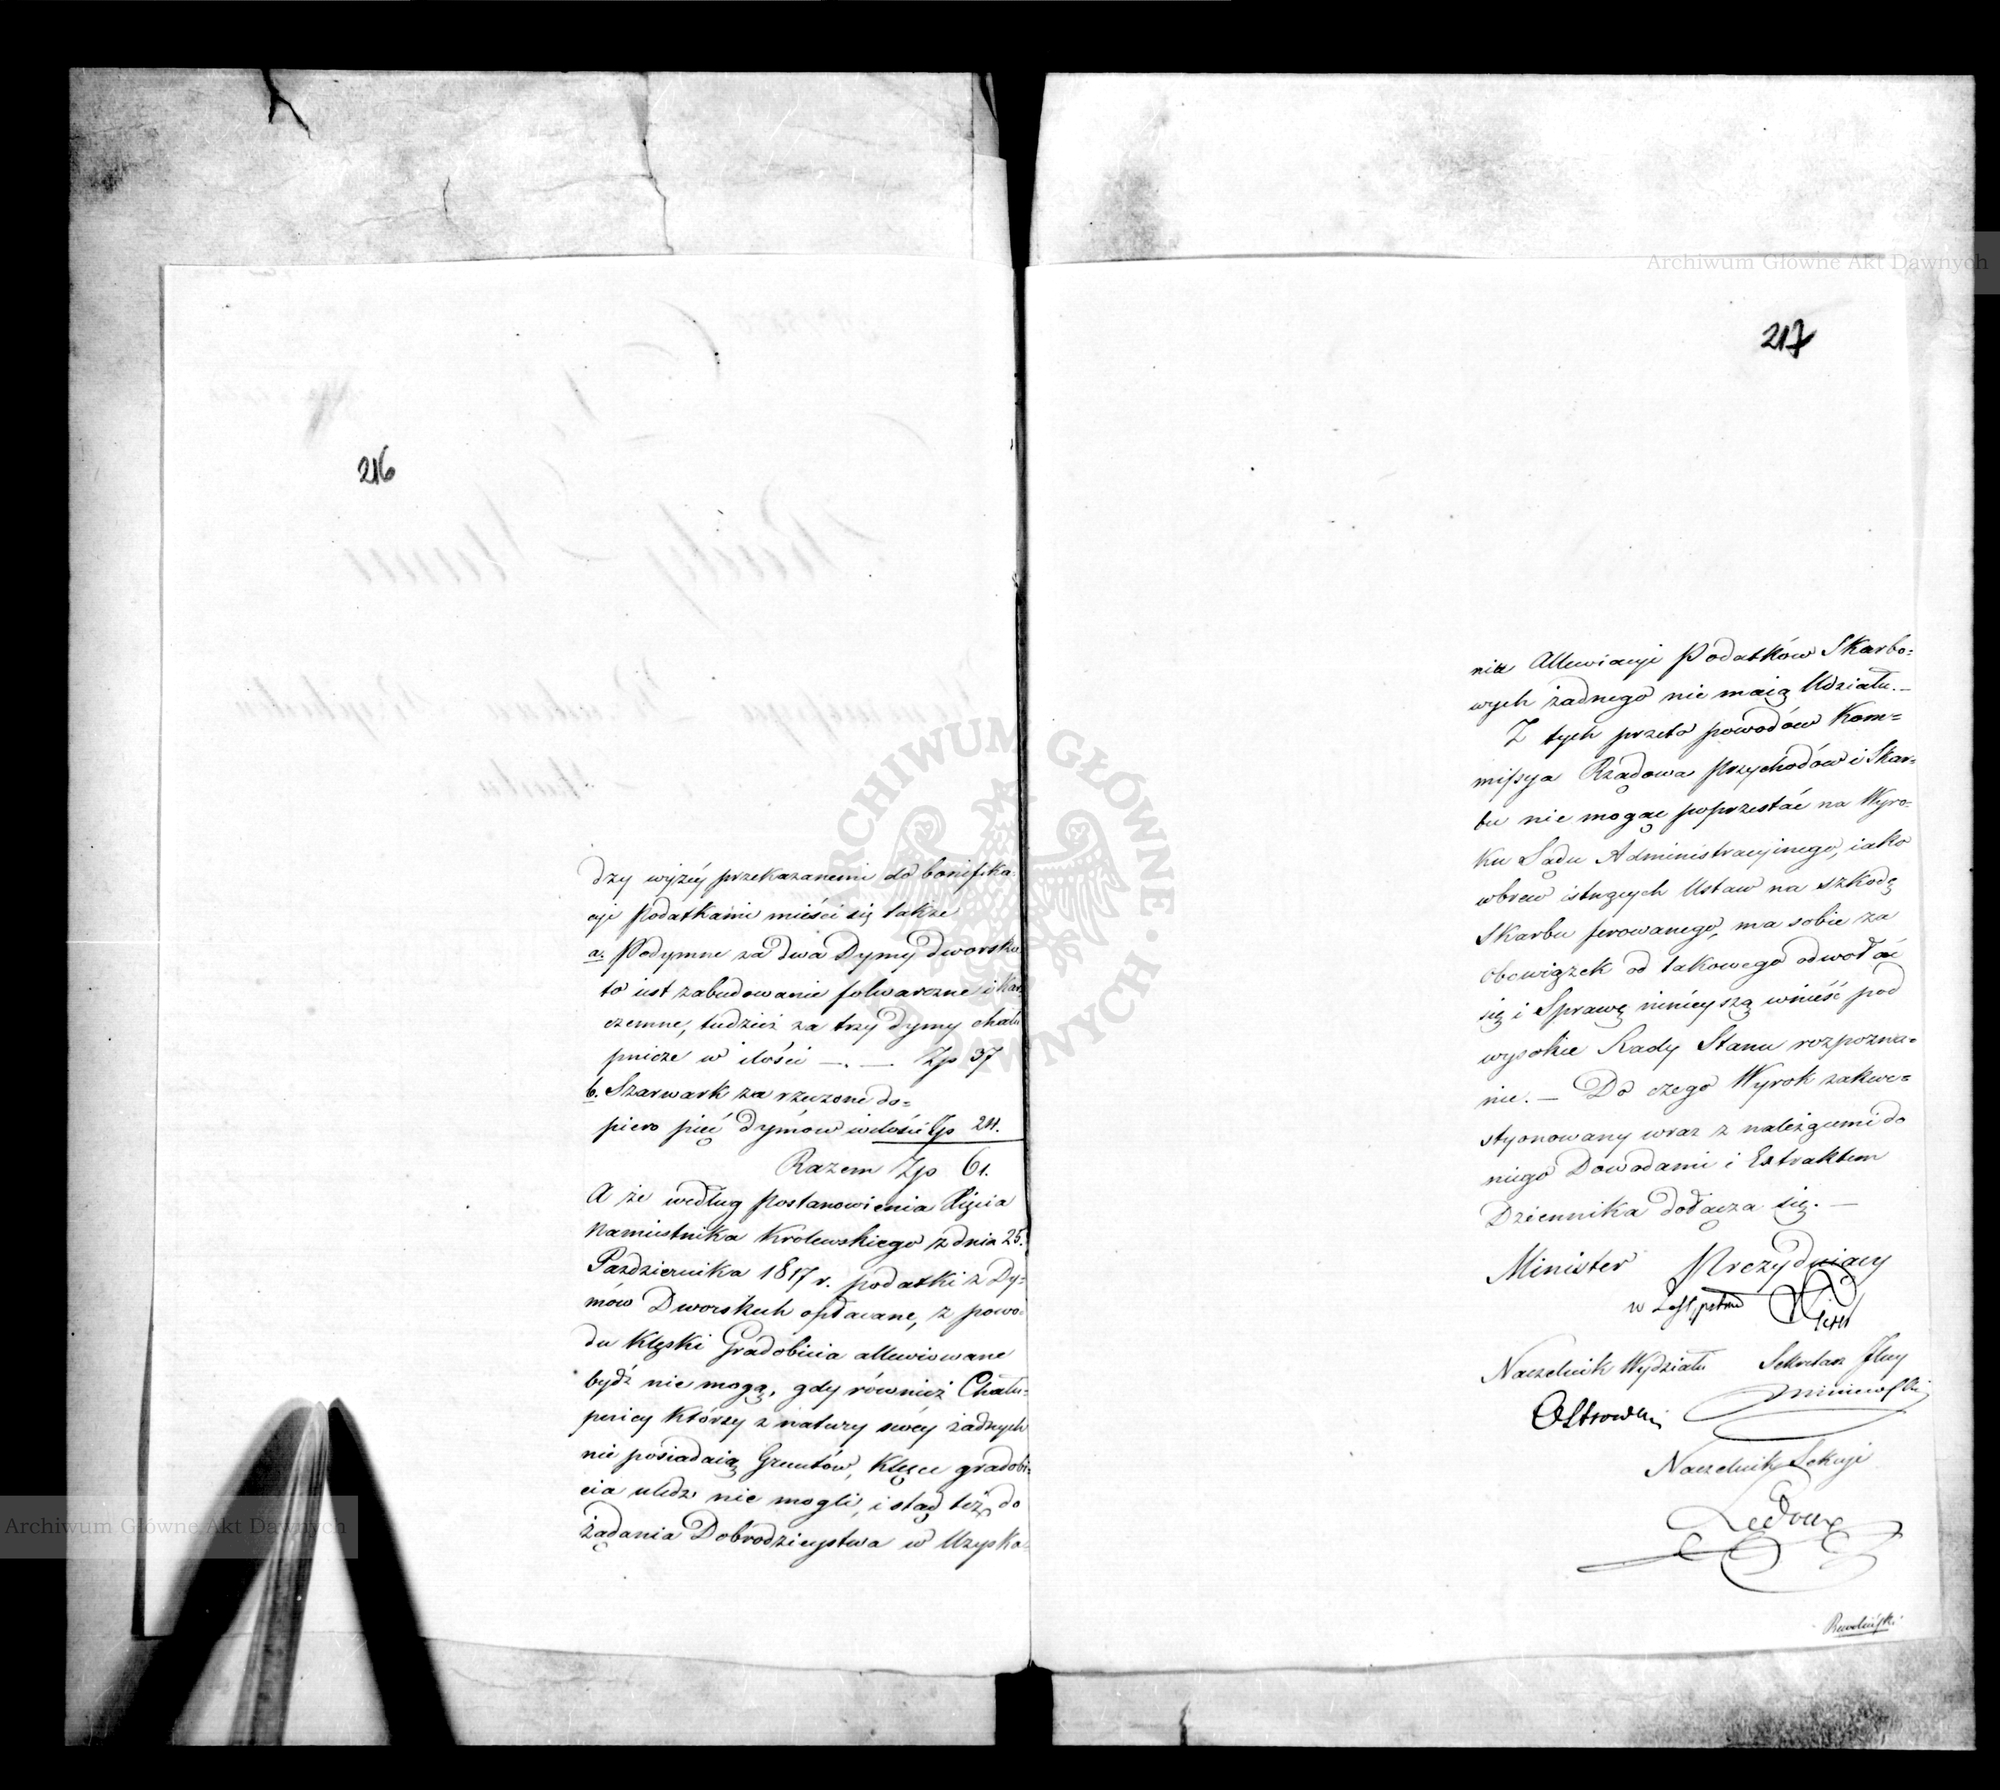 216
dzy wyżéy przekazanemi do bonifika-
cyi Podatkami mieści się także
a. Podymne za dwa Dymy dworskie
to iest zabudowanie folwarczne i Kar-
czemne, tudzież za trzy dymy chału
pnicze w ilości —.— Zp 37
b. Szarwark za rzeczone do=
piero pięć dymów w ilości Zp 24.
Razem Zp 61.
A że według Postanowienia Xięcia
Namiestnika Królewskiego z dnia 25.
Października 1817 r. podatki z Dy=
mów Dworskich opłacane, z powo-
du Klęski Gradobicia allewiowane
bydź nie mogą, gdy również Chału-
pnicy którzy z natury swéy żadnych
nie posiadaią Gruntów, Klęsce gradobi-
cia uledz nie mogli, i stąd też do
żądania Dobrodzieystwa w Uzyska-
217
nia Allewiacyi Podatków Skarbo=
wych żadnego nie maią Udziału.—
Z tych przeto powodów Kom=
missya Rządowa Przychodów i Skar-
bu nie mogąc poprzestać na Wyro-
ku Sądu Administracyinego, iako
wbrew istnących Ustaw na szkodę
Skarbu ferowanego, ma sobie za
obowiązek od takowego odwołać
się i Sprawę ninieyszą wnieść pod
wysokie Rady Stanu rozpozna=
nie.— Do czego Wyrok zakwe=
styonowany wraz z należącemi do
niego Dowodami i Extraktem
Dziennika dołącza się.—
Minister Prezyduiący
w Zastępstwie
Naczelnik Wydziału Sekretarz Jlny
Ostrowski
Naczelnik Sekcyi
Ledoux
Archiwum Główne Akt Dawnych
Archiwum Główne Akt Dawnych
ARCHIWUM GŁÓWNE AKT DAWNYCH